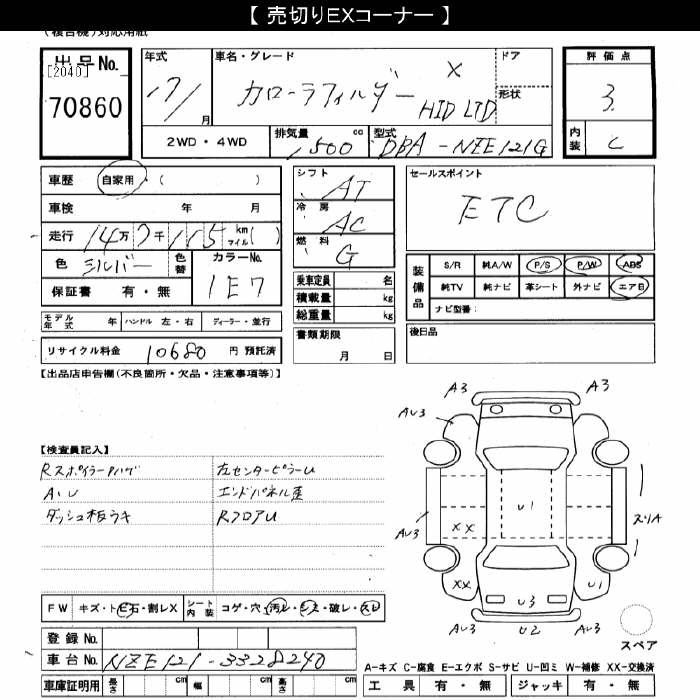 【 売切りEXコーナー 】
(複合機)対応用紙
出品No.
[2040]
70860
年式
17/
月
車名・グレード
カローラフィルダー X
HID LTD
ドア
形状
2WD・4WD
排気量
1500 cc
型式
DBA-NZE121G
評価点
3
内装
C
車歴 自家用・( )
車検 年 月
走行 14万7千115 km マイル( )
色 シルバー
色替
カラーNo.
1E7
保証書 有・無
モデル年式 年 ハンドル 左・右 ディーラー・並行
リサイクル料金 10680 円 預託済
シフト AT
冷房 AC
燃料 G
乗車定員 名
積載量 kg
総重量 kg
書類期限
月 日
セールスポイント
ETC
装備品
S/R 純A/W P/S P/W ABS
純TV 純ナビ 革シート 外ナビ エアB
ナビ型番:
後日品
【出品店申告欄(不良箇所・欠品・注意事項等)】
【検査員記入】
Rスポイラーハゲ
A・U
ダッシュ板ウキ
左センターピラーU
エンドパネル歪
RフロアU
A3 A3
AU3
U1
AU3
XX
スリA
XX
U1
U3
AU3 U2 AU3
スペア
FW キズ・ト ビ石・割レX
シート内装 コゲ・穴・汚レ・シミ・破レ・スレ
登録No.
車台No. NZE121-3328240
車庫証明用 長さ cm 幅 cm 高さ cm
A-キズ C-腐食 E-エクボ S-サビ U-凹ミ W-補修 XX-交換済
工具 有・無 ジャッキ 有・無